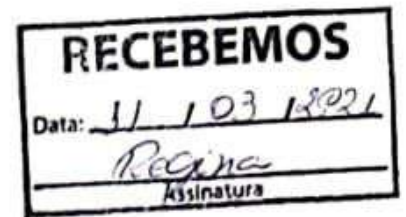 RECEBEMOS
Data: 11 / 03 / 2021
Regina
Assinatura